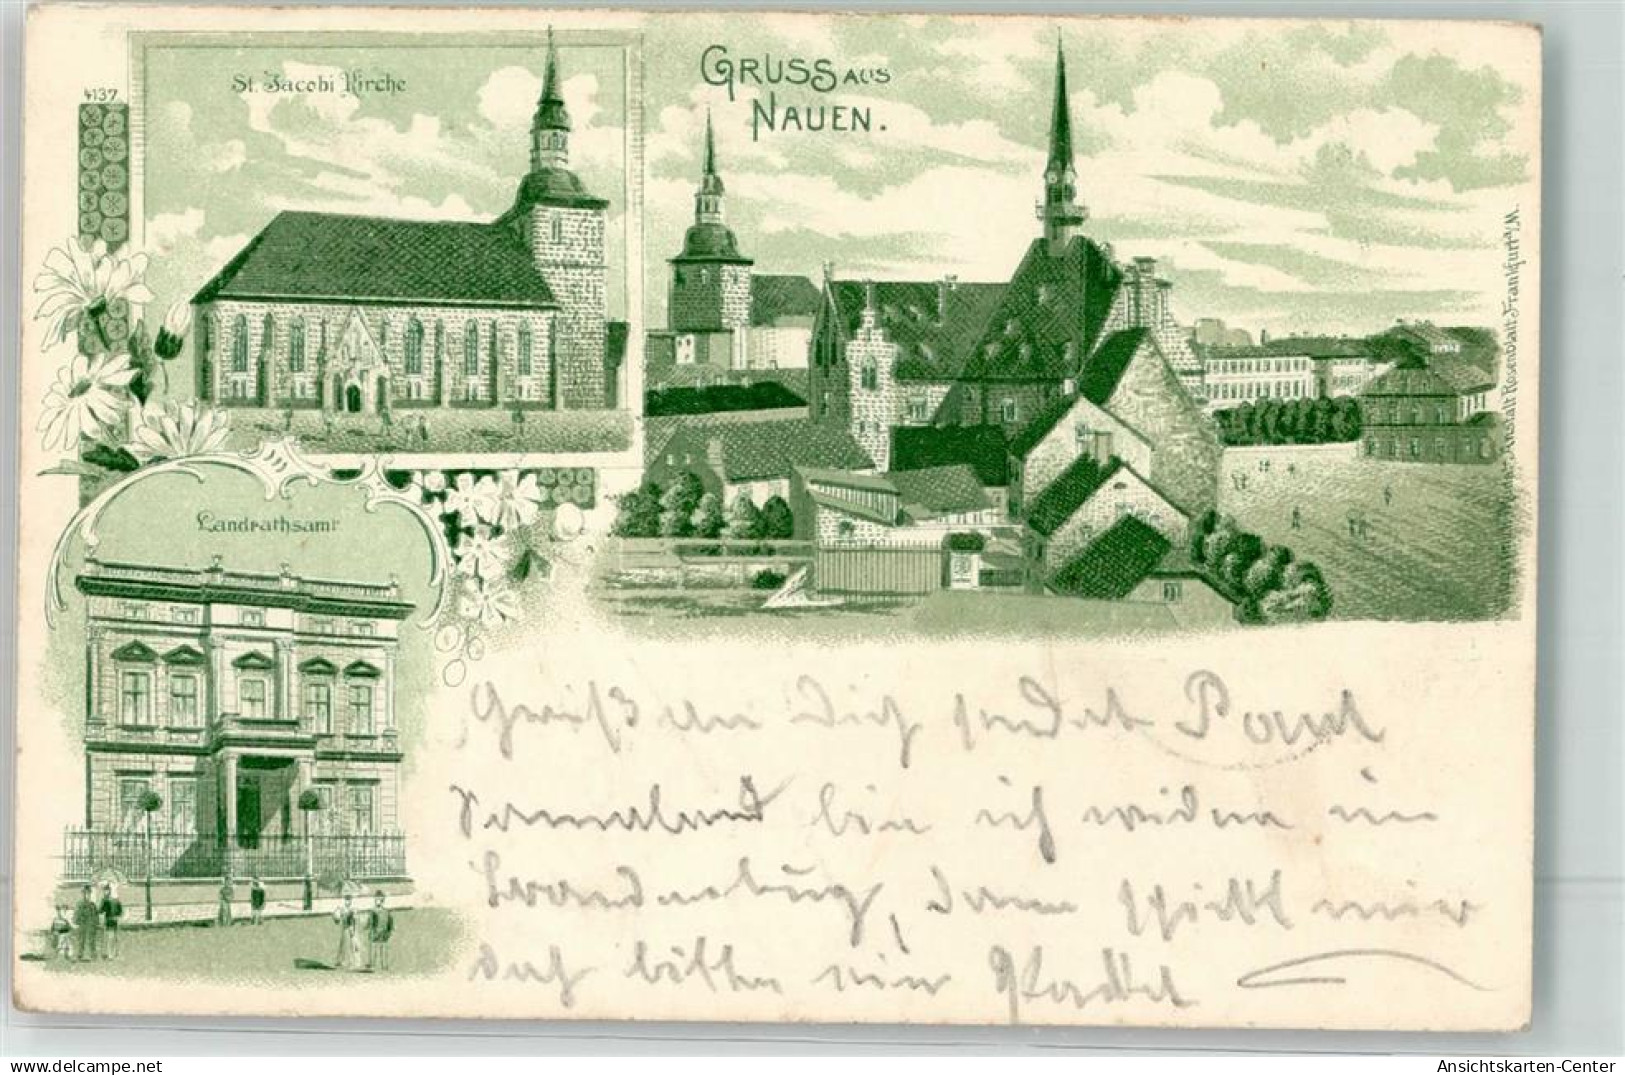 4137
St. Jacobi Kirche
GRUSS AUS
NAUEN.
Landrathsamt
Kunstanstalt Rosenblatt Frankfurt a/M.
Gruß an Dich sendet Paul
Sonnabend bin ich wieder in
Brandenburg, dann schickt mir
doch bitte ein Packet
Ansichtskarten-Center